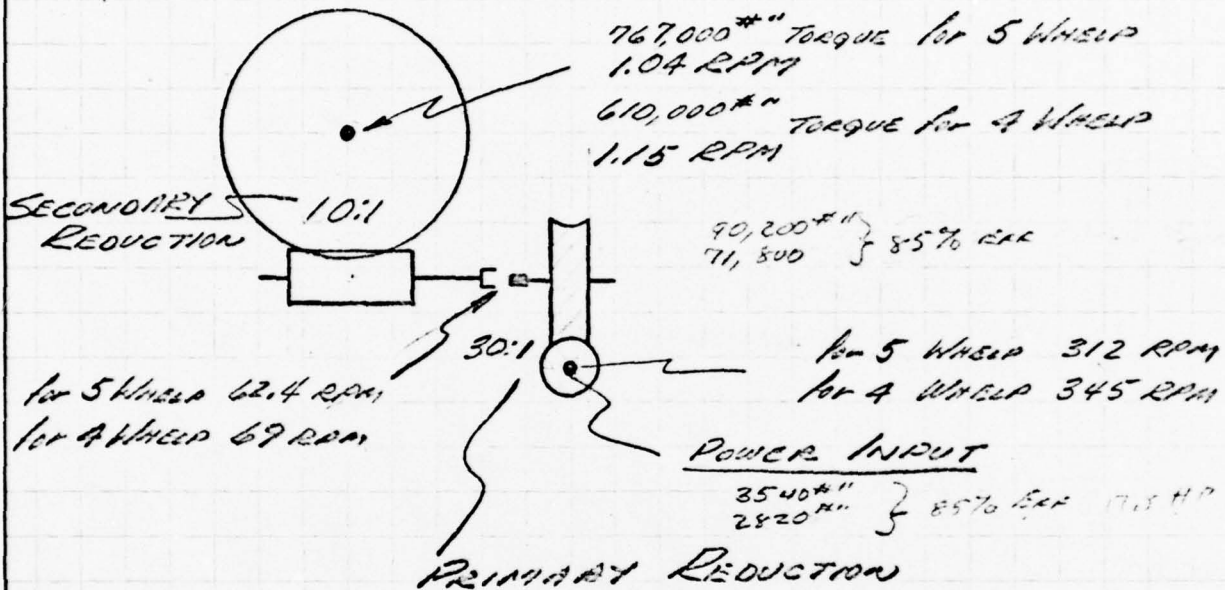 767,000#" TORQUE for 5 WHEELS
1.04 RPM
610,000#" TORQUE for 4 WHEELS
1.15 RPM
SECONDARY
REDUCTION
10:1
90,200#"
71,800
85% EFF
30:1
for 5 WHEELS 312 RPM
for 4 WHEELS 345 RPM
for 5 WHEELS 62.4 RPM
for 4 WHEELS 69 RPM
POWER INPUT
3540#"
2820#"
85% EFF 17.5 HP
PRIMARY REDUCTION